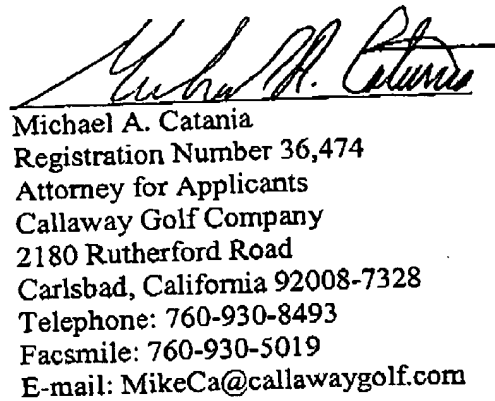 Michael A. Catania
Michael A. Catania
Registration Number 36,474
Attorney for Applicants
Callaway Golf Company
2180 Rutherford Road
Carlsbad, California 92008-7328
Telephone: 760-930-8493
Facsmile: 760-930-5019
E-mail: MikeCa@callawaygolf.com